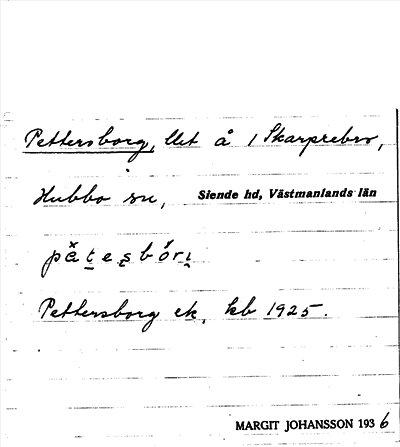 Pettersborg, llet å 1 Skarprebro,
Hubbo sn, Siende hd, Västmanlands län
pätesbóri
Pettersborg ek, kb 1925.
MARGIT JOHANSSON 1936